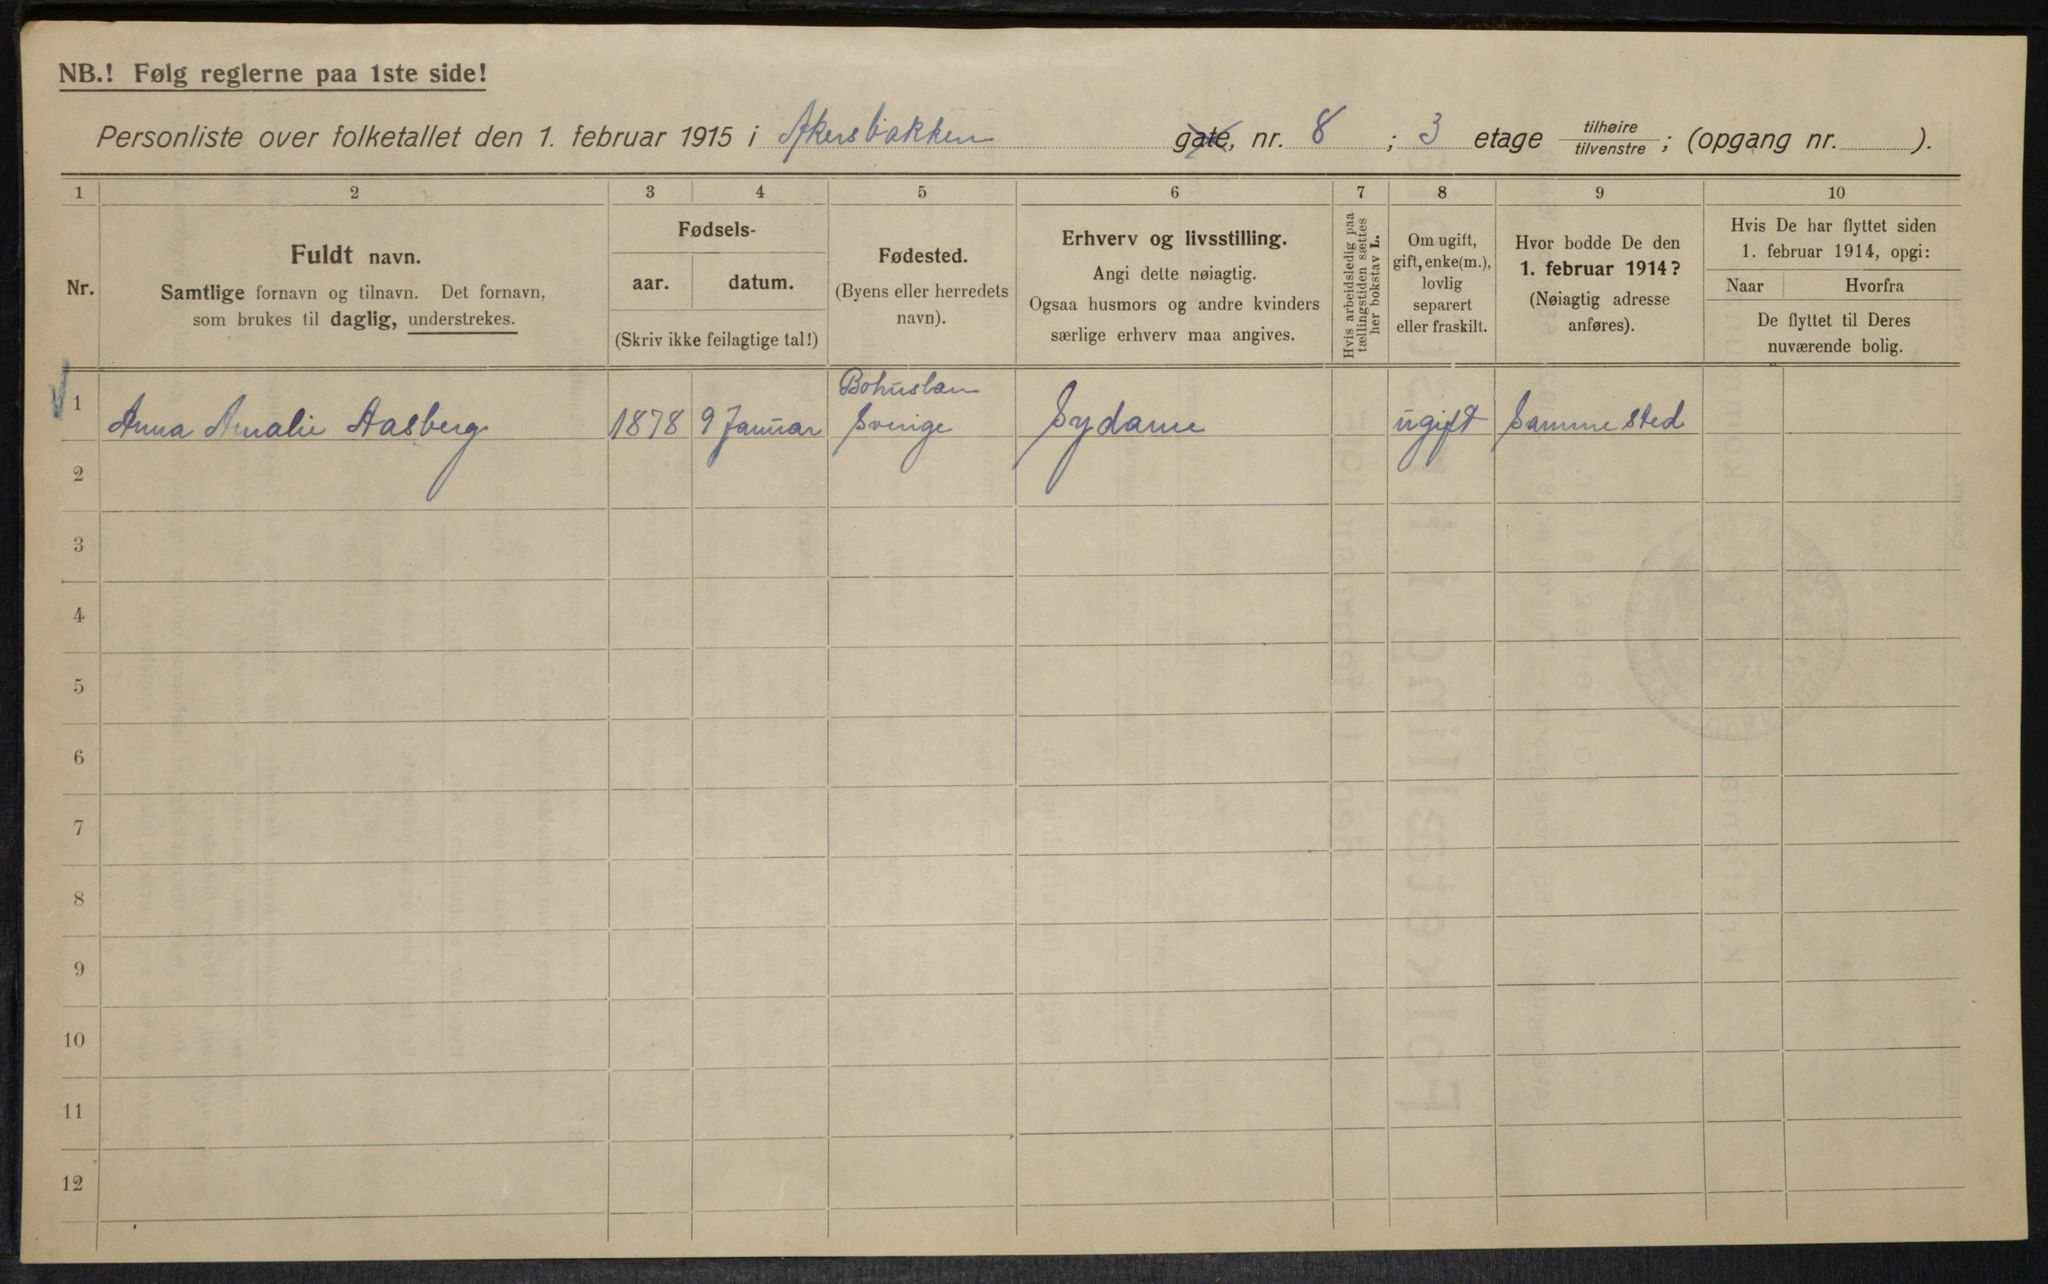 NB.! Følg reglerne paa 1ste side!
Personliste over folketallet den 1. februar 1915 i Akersbakken gate, nr. 8 ; 3 etage tilhøire tilvenstre ; (opgang nr. ).
1 2 3 4 5 6 7 8 9 10
Nr.
Fuldt navn.
Samtlige fornavn og tilnavn. Det fornavn,
som brukes til daglig, understrekes.
Fødsels-
aar. datum.
(Skriv ikke feilagtige tal!)
Fødested.
(Byens eller herredets
navn).
Erhverv og livsstilling.
Angi dette nøiagtig.
Ogsaa husmors og andre kvinders
særlige erhverv maa angives.
Hvis arbeidsledig paa
tællingstiden sættes
her bokstav L.
Om ugift,
gift, enke(m.),
lovlig
separert
eller fraskilt.
Hvor bodde De den
1. februar 1914?
(Nøiagtig adresse
anføres).
Hvis De har flyttet siden
1. februar 1914, opgi:
Naar Hvorfra
De flyttet til Deres
nuværende bolig.
Bohuslan
1 Anna Amalie Aasberg 1878 9 Januar Sverige Sydame ugift Samme sted
2
3
4
5
6
7
8
9
10
11
12